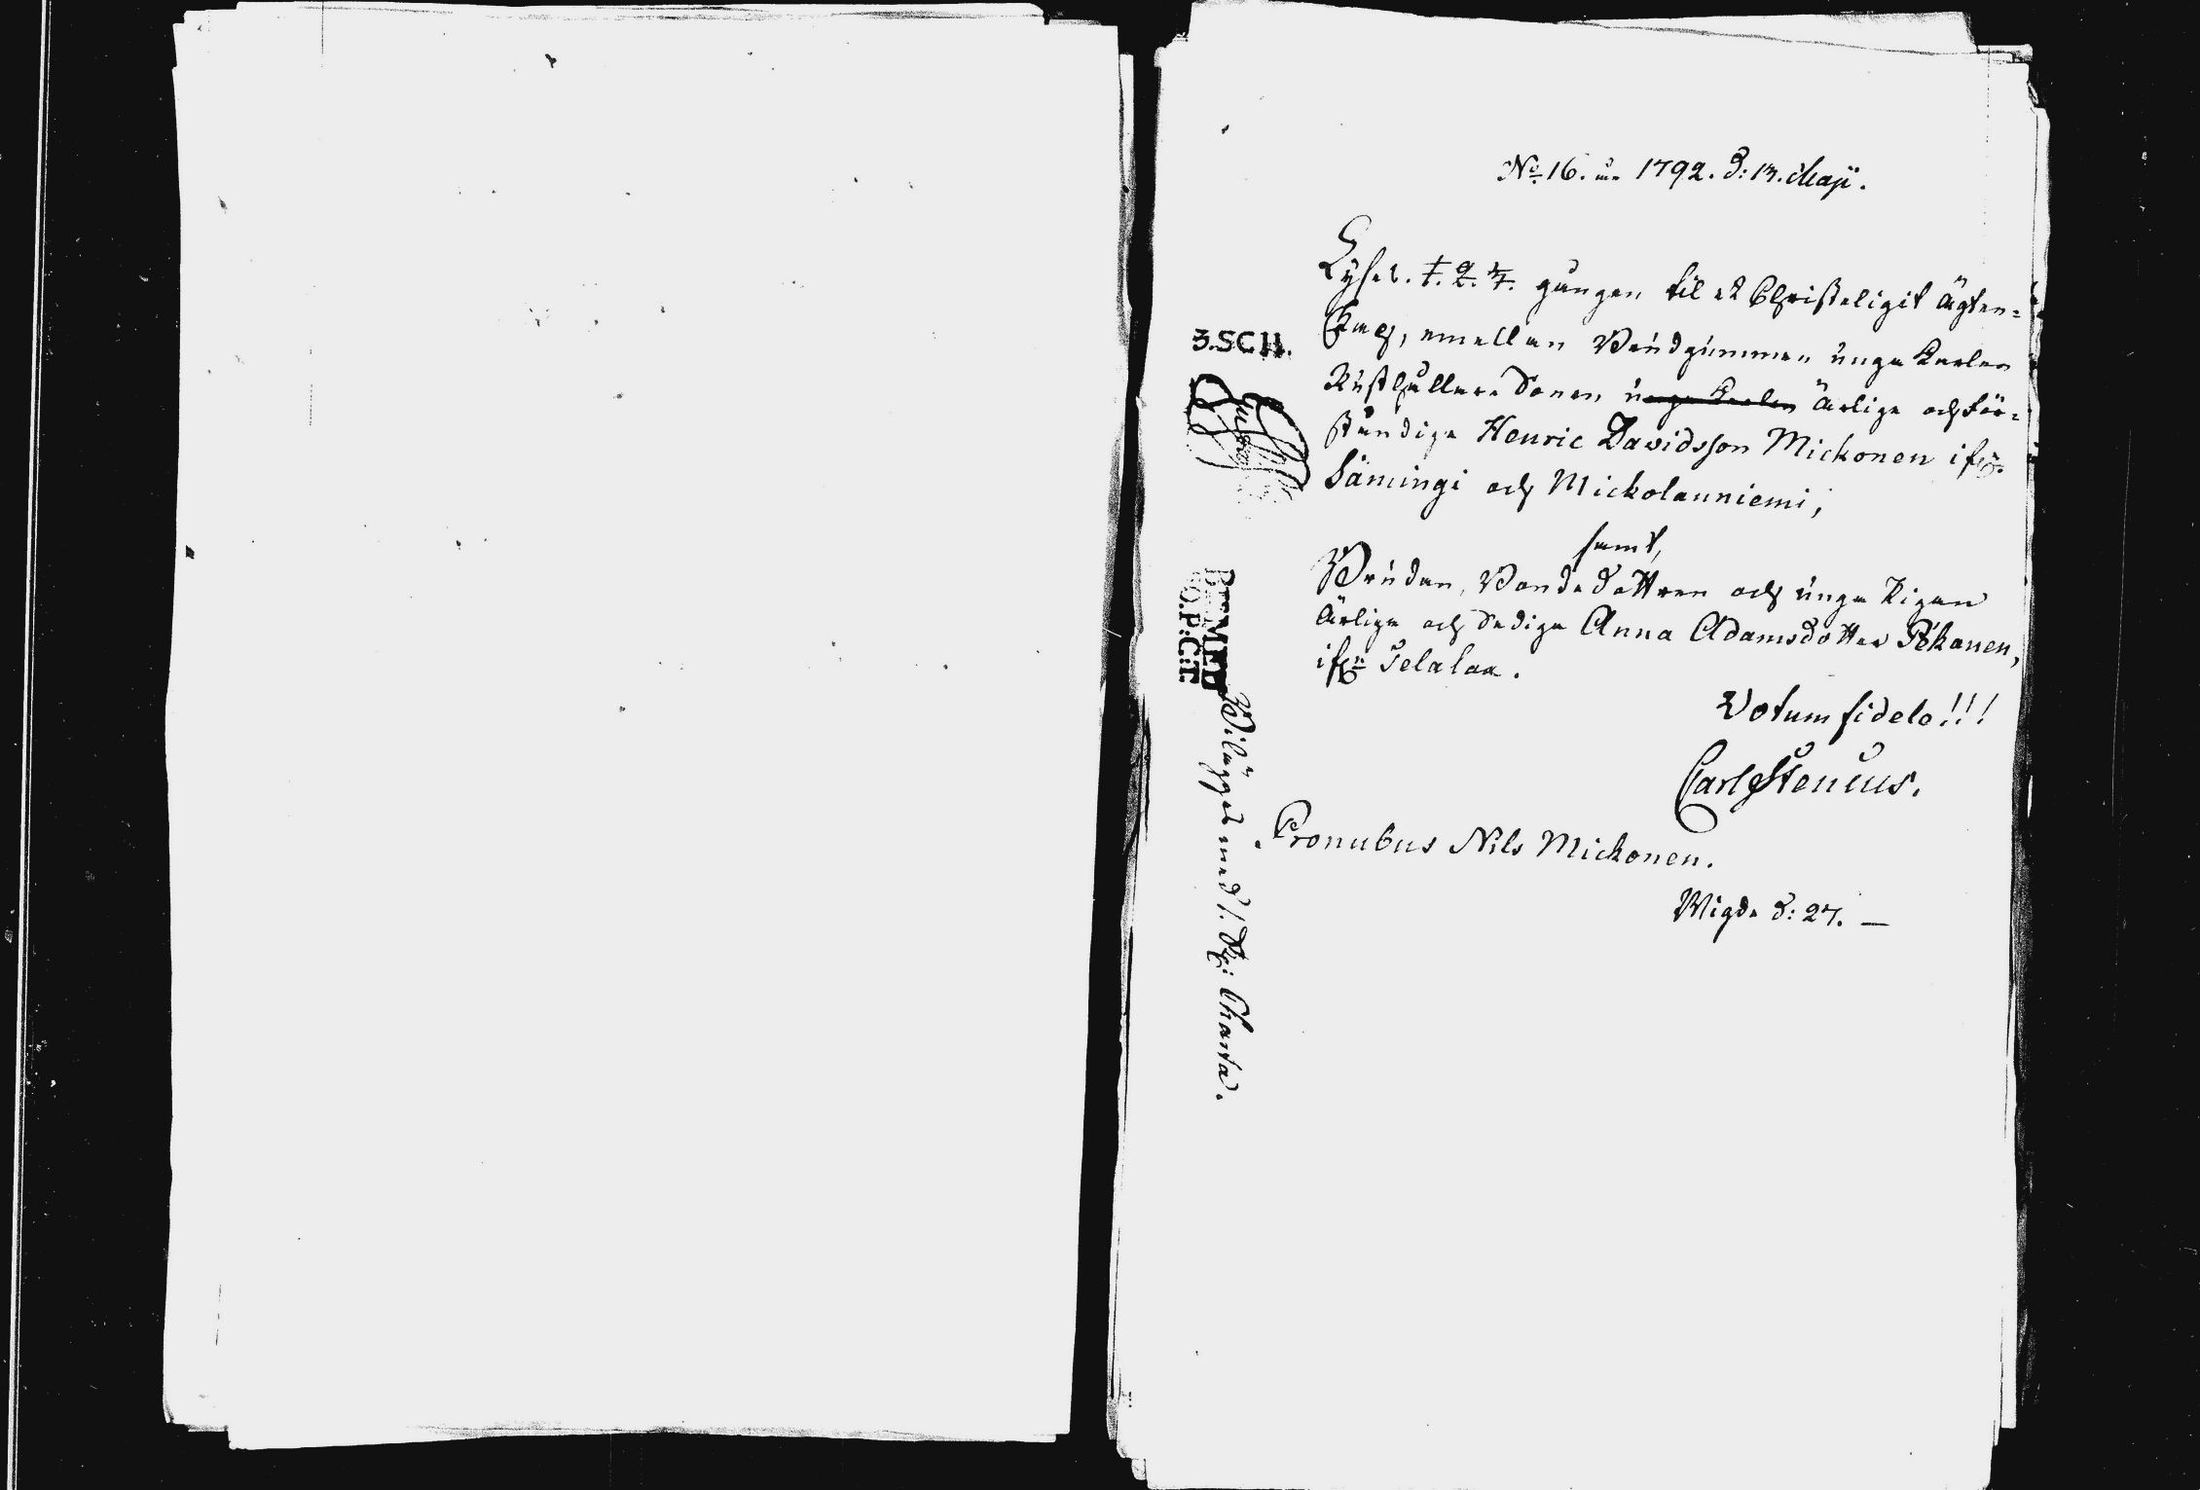 No 16. 1792. d: 13. Maji.
Lyses. 1. 2. 3. gången til et Christeligit ägten-
skap, emellan Brudgummen unga Karlen
Rusthållare Sonen unga Karlen ärlige och för-
ståndige Henric Davidsson Mickonen ifrån
Sämingi och Mickolanniemi;
samt,
Bruden, Bonde dottren och unga Pigan
ärliga och Sediga Anna Adamsdotter Pékanen,
ifrån Telalax.
Votum fidele!!!
Carl Stenius.
Pronubus Nils Mickonen.
Wigde d: 27. —
3.SCH.
B MED
O.P:C:T.
Bilägges med 1. Charta.